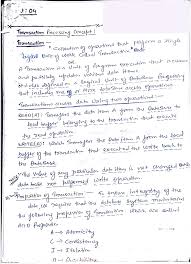 Transaction Processing Concept :
Transaction - Collection of operations that perform a single
logical unit of work called Transaction
OR
A Transaction is a unit of program execution that
and possibly updates various data items
Logical unit of Database Processing
that includes one or more database access operations
Transaction access data using two operations -
READ(X) - Transfer the data item X from the database to
local buffer belonging to the transaction that execute
the read operation
WRITE(X) - which transfer the data item X from the local
buffer of the transaction that executed the write back to
the database
The value of any particular data item is not changed
data base not performed write operation
Properties of Transaction - To ensure integrity of
the data we require that the database system maintains
the following properties of transaction which are called
ACID Properties
A → Atomicity
C → Consistency
I → Isolation
D → Durability